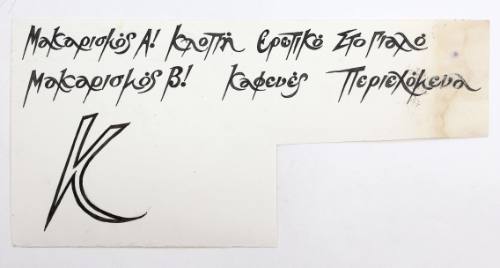 Μακαρισμός Α! Κλοπή Ερωτικό Στο Γιαλό
Μακαρισμός Β! Καφενές Περιεχόμενα
Κ